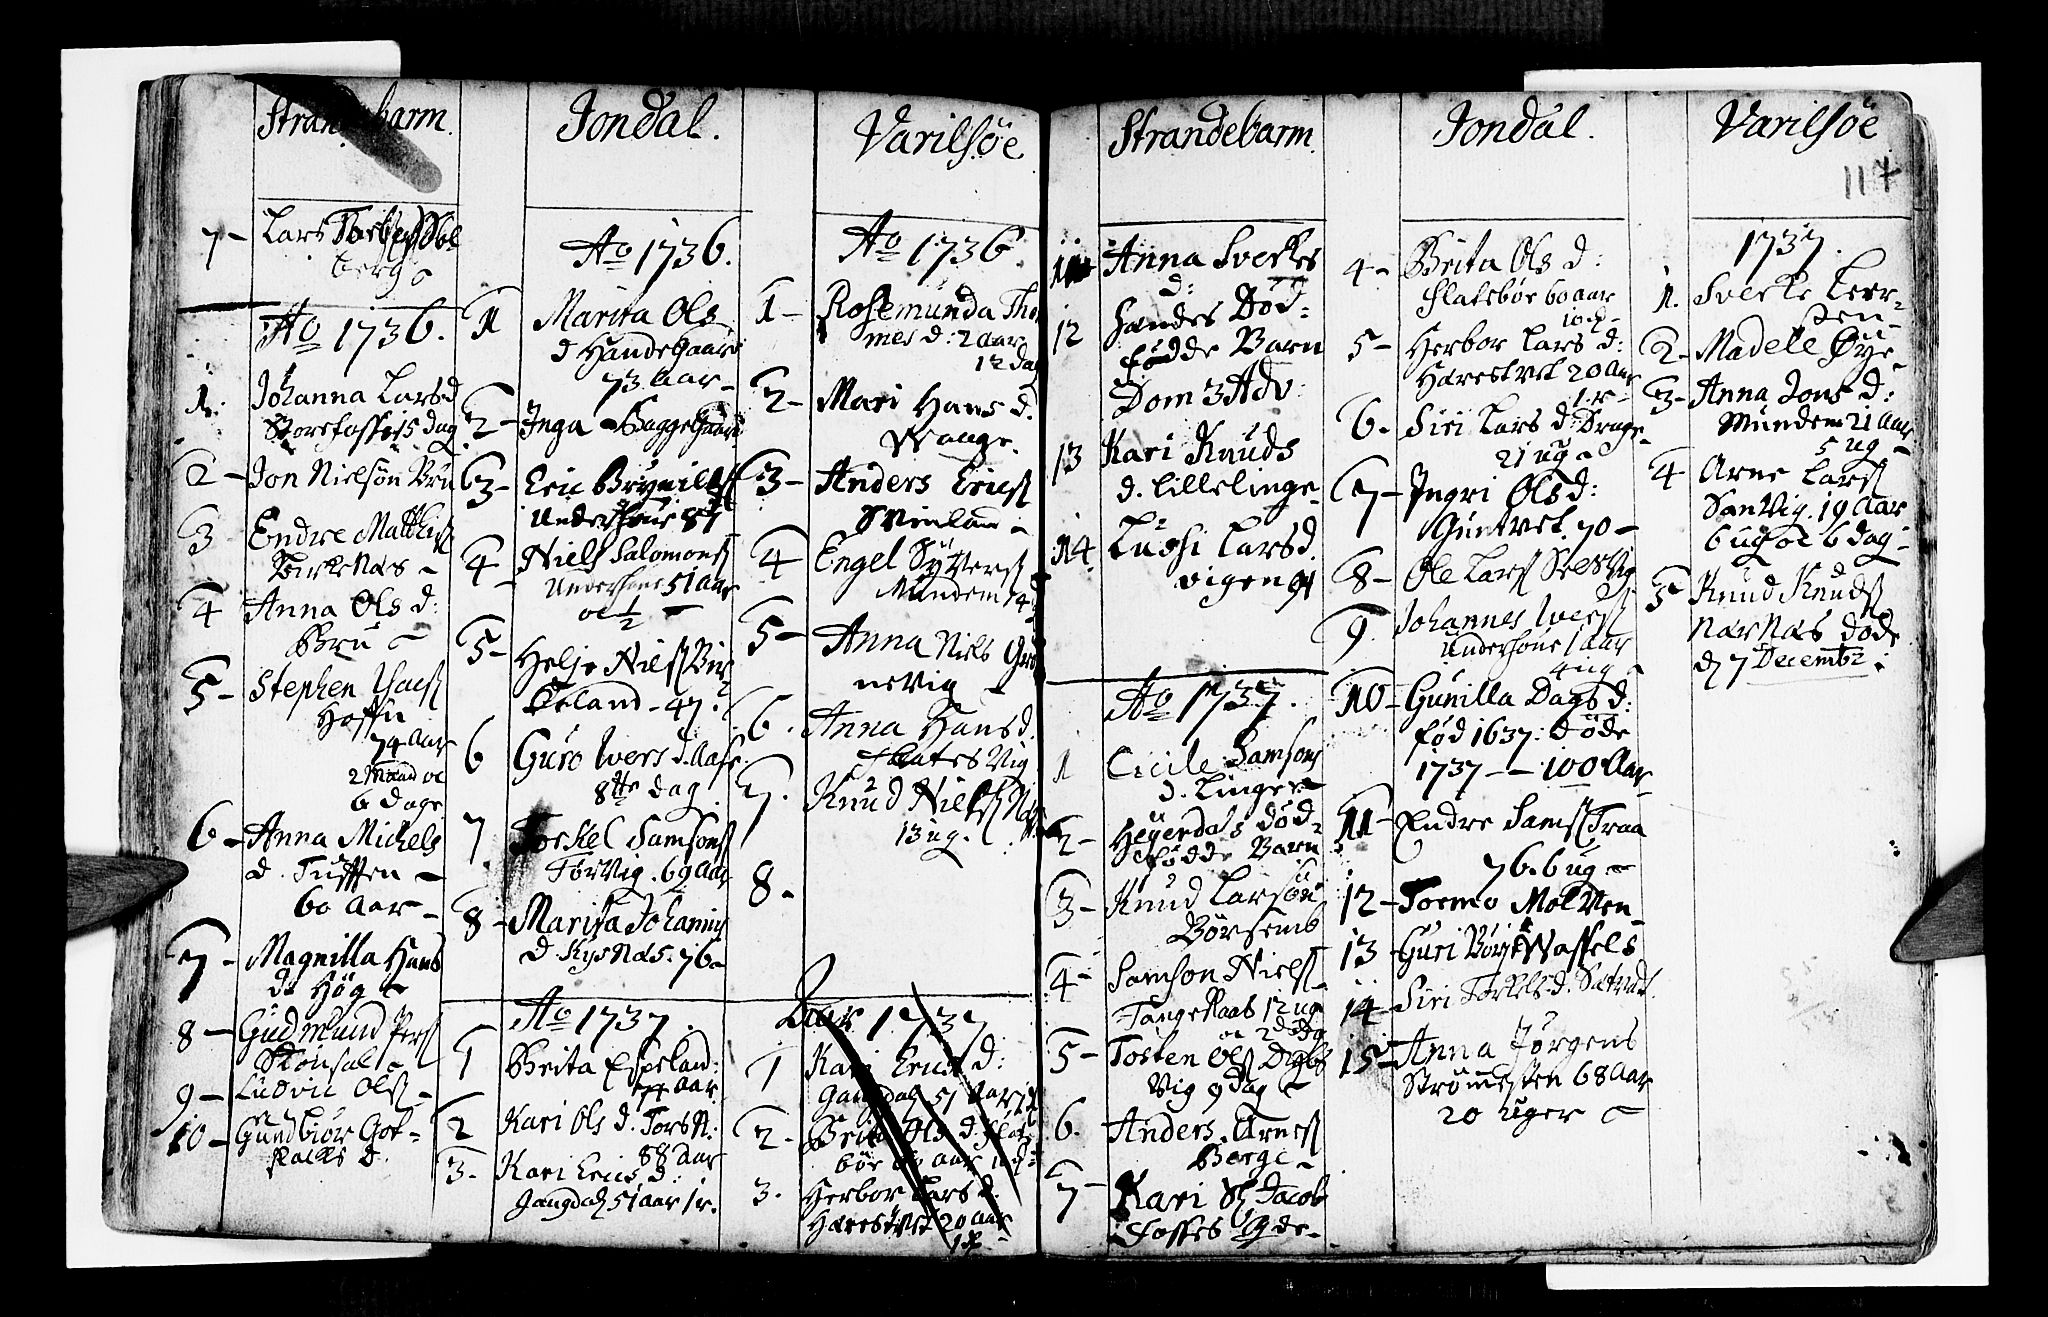 Strandebarm
7-
Lars
berg
Ao 1736.
1.
Johanna Larsd
Storefosse 15 dag
2-
Jon Nielsøn Bru
3
Endre Matthiss
Birkenæs -
4
Anna Ols d:
Bru
5-
Stephen
74 Aar
2 Maand oc
6 dage
6-
Anna Michels
d. Tufften -
60 Aar -
7-
Magnilla Hans
d. Høg
8-
Gudmund Pers
9-
Ludvic Ols -
10-
Gundbiør Got-
skalks d.
Jondal.
Ao 1736.
1
Marita Ols
d Handegaard
73 Aar -
2-
Inga Baggegaard
3-
Eric Brynills
Underhoue 87
4-
Niels Salomons
Underhoue 51 aar
oc 1/2 -
5-
Helje Niels Bir
keland - 47.
6
Guro Ivers d. Aase
8tte dag
7
Torkel Samsons
Torvig. 69 Aar
8-
Marita Johannis
d Kysnæs. 76 -
Ao 1737.
1
Brita Espeland:
74 Aar
2
Kari Ols d. Torst:
88 aar
3.
Kari Erics d:
Gangdal 51 aar 1 r.
Varilsöe
Ao 1736
1-
Rosemunda Tho
mes d: 2 Aar
12 dag
2-
Mari Hans d.
Wange.
3-
Anders Erics
Svinland -
4
Engel Syvers
Mundem 74
5-
Anna Niels Grø
nevig -
6.
Anna Hans d.
Skatesvig
7.
Knud Niels
13 ug.
8.
1737
1
Kari Erics d:
Gangdal 51 Aar 1 r
2.
Brita Ols d. Flat
bøe 60 aar
3.
Herbor Lars d.
Hærestvet 20 Aar
1 r
Strandebarm
11
Anna Sverkes
d:
12
Sandes Død-
fødde Barn
Dom 3 Adv.
13
Kari Knuds
d. Lillelinge -
14.
Ludsi Larsd.
vigen 91
Ao 1737.
1
Cicile Samsons
d. Linge -
2-
Hegerdals død-
fødde Barn
3-
Knud Larsøn
Børsem
4-
Samson Niels
12 ug
oc 2 dag
5-
Tosten Ols
Vig 9 dag
6.
Anders Arnes
Berge -
7-
Kari
Fosses
Jondal.
4-
Brita Ols d:
Flatebøe 60 aar
5-
Herbor Lars d:
Hærestvet 20 Aar
1 r -
6.
Siri Lars d: Drage -
21 ug
7-
Ingri Ols d:
Guntvet. 70 -
8-
Ole Lars Selsvig
9.
Johannes Ivers
Underhoue 1 aar
4 ug
10-
Gunilla Dags d:
fød 1637: døde
1737 - - 100 Aar -
11-
Endre Sams Traa
76. 6 ug -
12-
Tormo Molven -
13-
Guri
14-
Siri Torkels d. Sætvet
15-
Anna Jørgens
Strømmesten 68 Aar
20 uger
Varilsöe
117
1737.
1.
Sverke Leer-
2-
Madele Øye -
3-
Anna Jons d:
Mundem 21 Aar
5 ug -
4
Arne Lars
Sanvig. 19 Aar
6 ug oc 6 dag -
5
Knud Knuds
Nærnæs døde
d 7 Decemb: